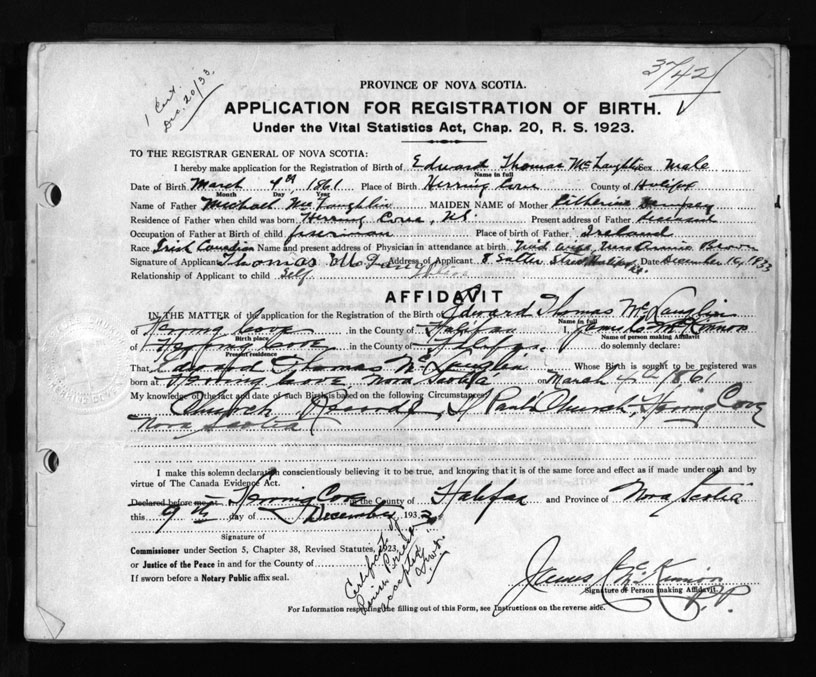 37/42
1 Cert.
Dec. 20/33
PROVINCE OF NOVA SCOTIA.
APPLICATION FOR REGISTRATION OF BIRTH.
Under the Vital Statistics Act, Chap. 20, R. S. 1923.
TO THE REGISTRAR GENERAL OF NOVA SCOTIA:
I hereby make application for the Registration of Birth of Edward Thomas McLaughlin Sex Male
Name in full
Date of Birth March 4th 1861 Place of Birth Herring Cove County of Halifax
Month Day Year
Name of Father Michael McLaughlin MAIDEN NAME of Mother
Residence of Father when child was born Herring Cove, NS. Present address of Father deceased
Occupation of Father at Birth of child Place of birth of Father, Ireland
Race Irish Canadian Name and present address of Physician in attendance at birth, Mid wife, Mrs Annie Brown
Signature of Applicant Thomas McLaughlin Address of Applicant 8 Salter Street Halifax Date December 16, 1933
Relationship of Applicant to child Self
AFFIDAVIT
IN THE MATTER of the application for the Registration of the Birth of Edward Thomas McLaughlin
Name in full
of Herring Cove in the County of Halifax I, James McKinnon
Birth place Name of person making Affidavit
of Herring Cove in the County of Halifax. do solemnly declare:
Present residence
That Edward Thomas McLaughlin Whose Birth is sought to be registered was
born at Herring Cove Nova Scotia on March 4 1861
My knowledge of the fact and date of such Birth is based on the following Circumstances
Church Records, St Paul's Church, Herring Cove
Nova Scotia
I make this solemn declaration conscientiously believing it to be true, and knowing that it is of the same force and effect as if made under oath and by
virtue of The Canada Evidence Act.
Declared before me at Herring Cove in the County of Halifax and Province of Nova Scotia
this 9th day of December 193
Signature of
Commissioner under Section 5, Chapter 38, Revised Statutes, 1923,
or Justice of the Peace in and for the County of
If sworn before a Notary Public affix seal.
Certificate of
Parish Priest
accepted
James McKinnon
P.P.
Signature of Person making Affidavit.
For Information respecting the filling out of this Form, see Instructions on the reverse side.